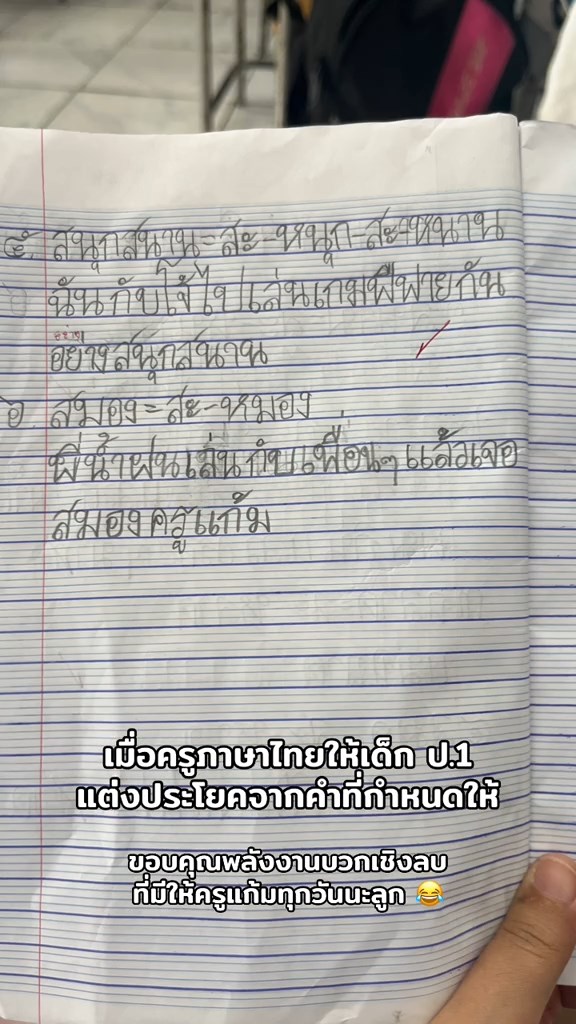 ๕. สนุกสนาน = สะ-หนุก-สะ-หนาน
ฉันกับโจ้ไปเล่นเกมฟีฟายกัน
อย่าง
อย่างสนุกสนาน
๖. สมอง = สะ-หมอง
พี่น้ำฝนเล่นกับเพื่อนๆแล้วเจอ
สมองครูแก้ม
เมื่อครูภาษาไทยให้เด็ก ป.1
แต่งประโยคจากคำที่กำหนดให้
ขอบคุณพลังงานบวกเชิงลบ
ที่มีให้ครูแก้มทุกวันนะลูก 😂